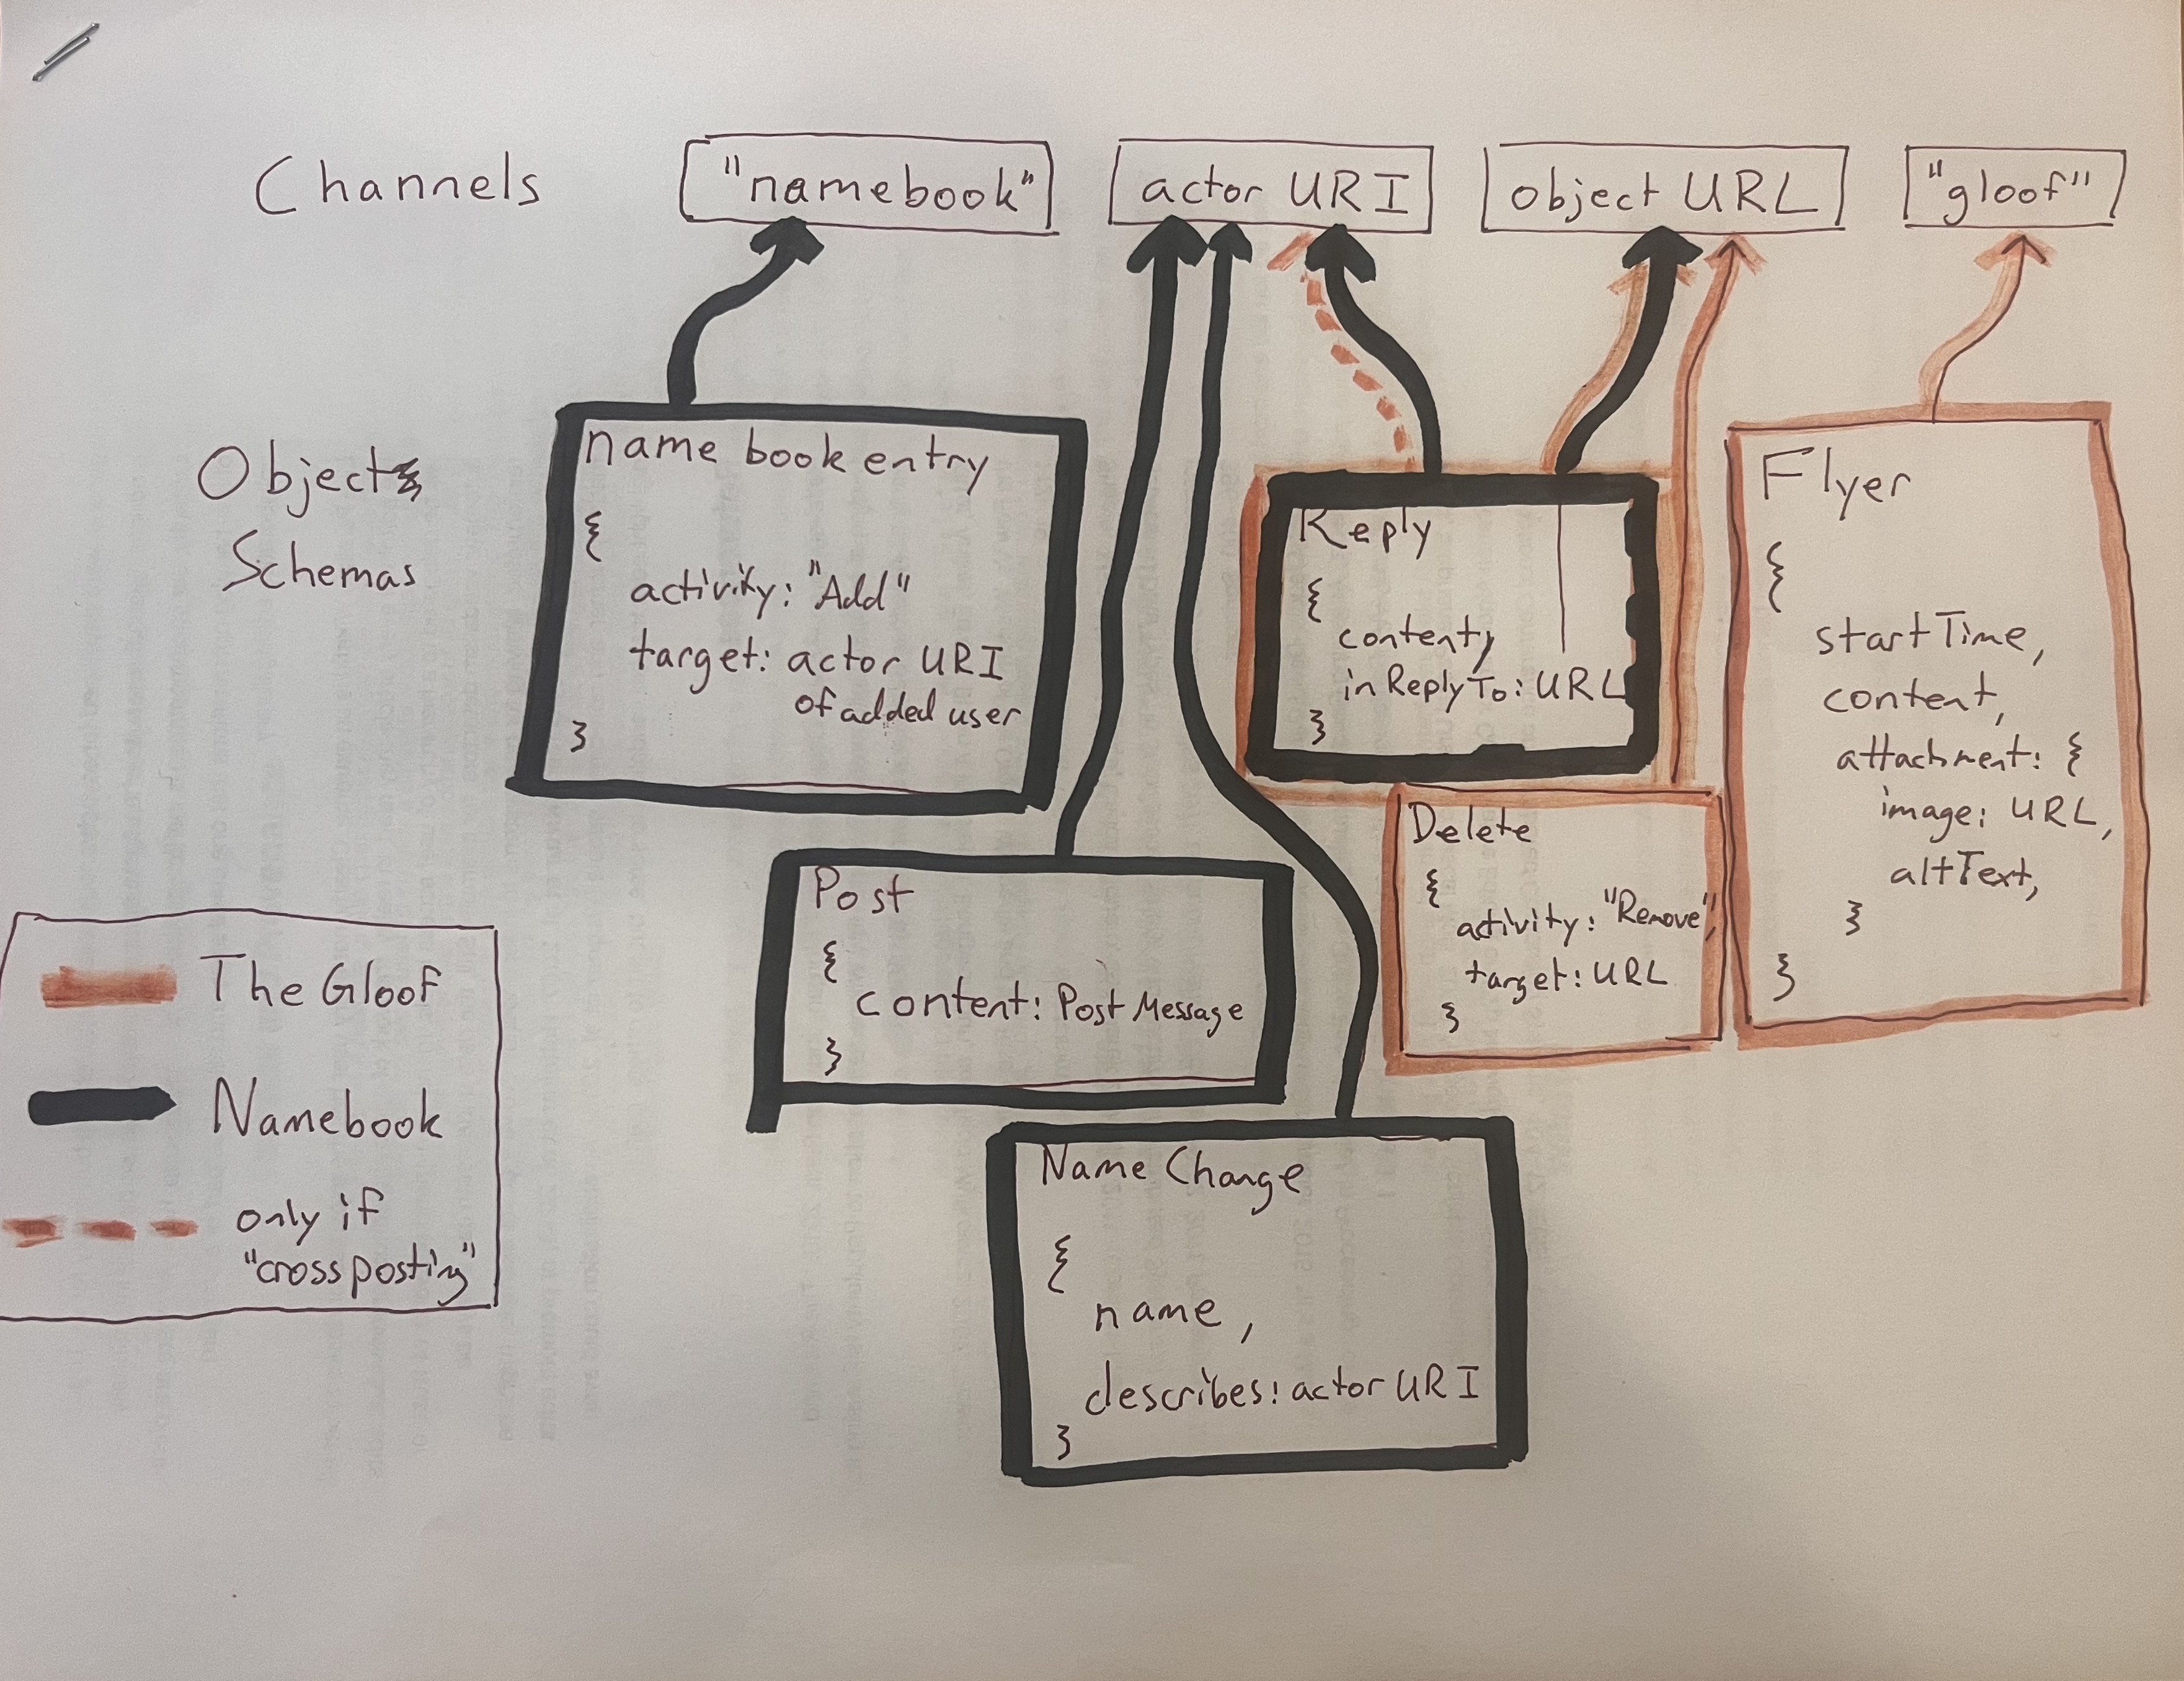 Channels
"namebook"
actor URI
object URL
"gloof"
Object
Schemas
name book entry
{
activity: "Add"
target: actor URI
of added user
}
Reply
{
content,
inReplyTo: URL
}
Flyer
{
startTime,
content,
attachment: {
image: URL,
altText,
}
}
Delete
{
activity: "Remove",
target: URL
}
Post
{
content: Post Message
}
Name Change
{
name,
describes: actor URI
}
The Gloof
Namebook
only if
"cross posting"